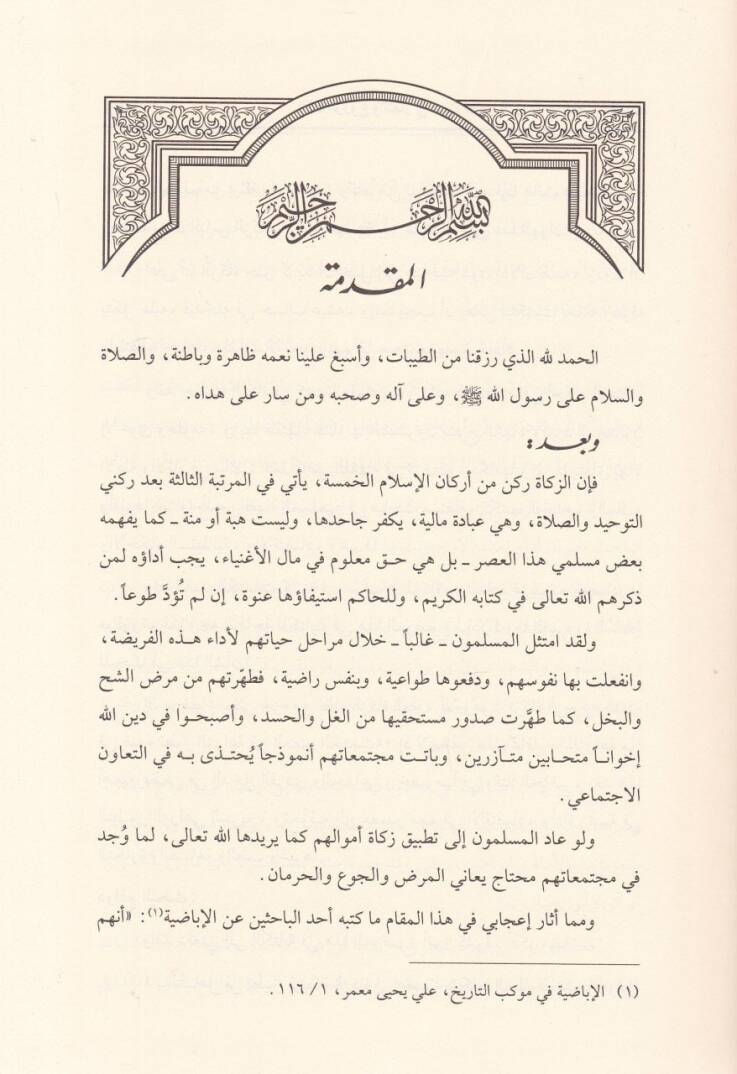 بسم الله الرحمن الرحيم
المقدمة
الحمد لله الذي رزقنا من الطيبات، وأسبغ علينا نعمه ظاهرة وباطنة، والصلاة
والسلام على رسول الله ﷺ، وعلى آله وصحبه ومن سار على هداه.
وبعد:
فإن الزكاة ركن من أركان الإسلام الخمسة، يأتي في المرتبة الثالثة بعد ركني
التوحيد والصلاة، وهي عبادة مالية، يكفر جاحدها، وليست هبة أو منة ـ كما يفهمه
بعض مسلمي هذا العصر ـ بل هي حق معلوم في مال الأغنياء، يجب أداؤه لمن
ذكرهم الله تعالى في كتابه الكريم، وللحاكم استيفاؤها عنوة، إن لم تُؤدَّ طوعاً.
ولقد امتثل المسلمون ـ غالباً ـ خلال مراحل حياتهم لأداء هذه الفريضة،
وانفعلت بها نفوسهم، ودفعوها طواعية، وبنفس راضية، فطهّرتهم من مرض الشح
والبخل، كما طهَّرت صدور مستحقيها من الغل والحسد، وأصبحوا في دين الله
إخواناً متحابين متآزرين، وباتت مجتمعاتهم أنموذجاً يُحتذى به في التعاون
الاجتماعي.
ولو عاد المسلمون إلى تطبيق زكاة أموالهم كما يريدها الله تعالى، لما وُجد
في مجتمعاتهم محتاج يعاني المرض والجوع والحرمان.
ومما أثار إعجابي في هذا المقام ما كتبه أحد الباحثين عن الإباضية(١): «أنهم
(١) الإباضية في موكب التاريخ، علي يحيى معمر، ١/ ١١٦.